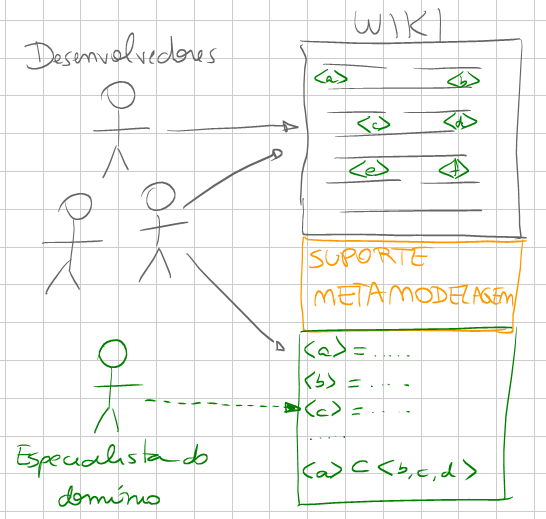 WIKI
Desenvolvedores
<a> <b>
<c> <d>
<e> <f>
SUPORTE
METAMODELAGEM
<a> = .....
<b> = ....
<c> = ....
.....
<a> C <b,c,d>
Especialista do
domínio